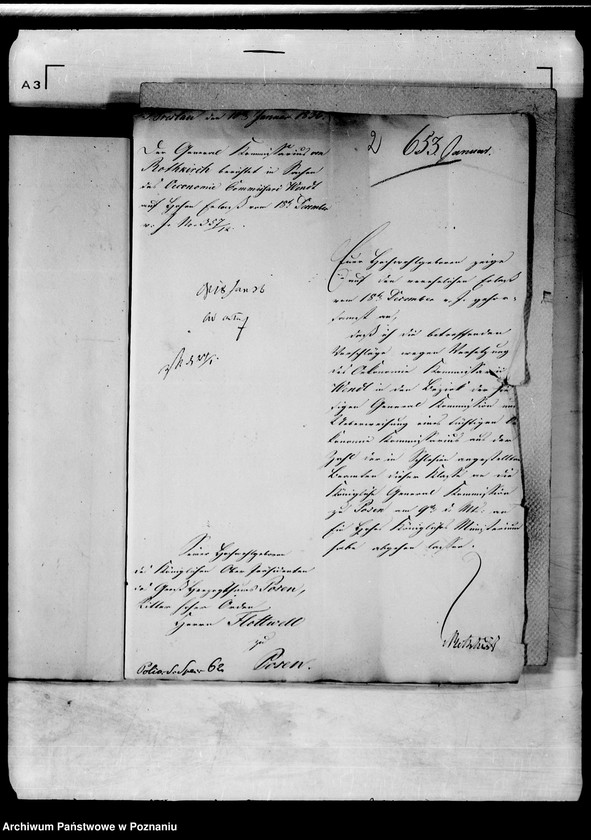 A 3
Breslau den 10t Januar 1836.
Der General Kommissarius von
Rothkirch berichtet in Sachen
des Oeconomie Commissari Wendt
auf hohen Erlaß vom 18t Decembr
v. J. No
2
653 Januar.
Euer Hochwohlgeboren zeige
auf den verehrlichen Erlaß
vom 18t Decembr v. J. gehor-
samst an,
daß ich die betreffenden
Vorschläge wegen Versetzung
des Oekonomie Kommissarii
Wendt in den Bezirk der hie-
sigen General Kommission und
Ueberweisung eines tüchtigen Oe-
konomie Kommissarius aus der
Zahl der in Schlesien angestellten
Beamten dieser Klasse an die
Königliche General Kommission
zu Posen am 9t d. Mt. an
Ein Hohes Königliches Ministerium
habe abgehen lassen.
18 Jan 36
ad acta
Seiner Hochwohlgeboren
des Königlichen Ober Präsidenten
des Groß Herzogthums Posen,
Ritter hoher Orden
Herrn Flottwell
zu
Posen.
62
Archiwum Państwowe w Poznaniu